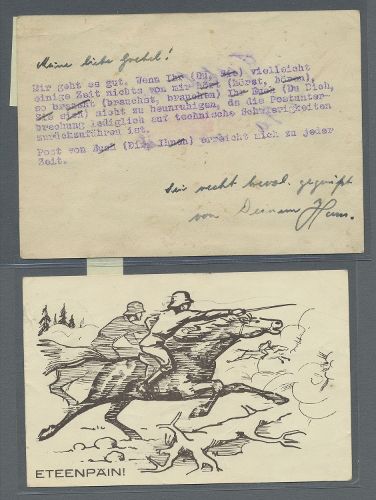 Meine liebe Gretel!
Mir geht es gut. Wenn Ihr (Du, Sie) vielleicht
einige Zeit nichts von mir hört (hörst, hören),
so braucht (brauchst, brauchen) Ihr Euch (Du Dich,
Sie sich) nicht zu beunruhigen, da die Postunter-
brechung lediglich auf technische Schwierigkeiten
zurückzuführen ist.
Post von Euch (Dir, Ihnen) erreicht mich zu jeder
Zeit.
Sei recht gegrüßt
von Deinem Hans.
ETEENPÄIN!